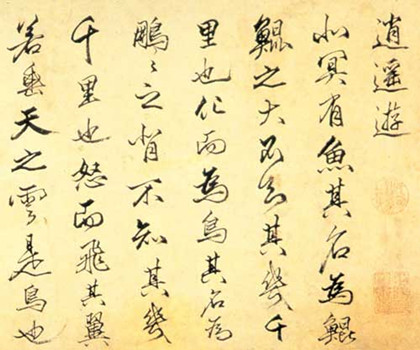 逍遥遊
北冥有魚其名為鯤
鯤之大不知其幾千
里也化而為鳥其名為
鵬〻之背不知其幾
千里也怒而飛其翼
若垂天之雲是鳥也